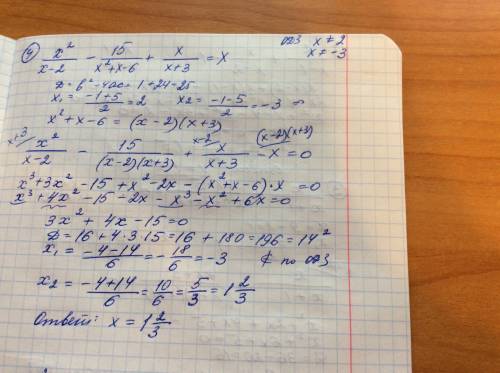 ④ x²/(x-2) - 15/(x²+x-6) + x/(x+3) = x ОДЗ x ≠ 2
x ≠ -3
D = b² - 4ac = 1 + 24 = 25
x₁ = (-1+5)/2 = 2 x₂ = (-1-5)/2 = -3 ⇒
x² + x - 6 = (x-2)(x+3)
x+3/ x²/(x-2) - 15/((x-2)(x+3)) + x-2/ x/(x+3) - (x-2)(x+3)/ x = 0
x³ + 3x² - 15 + x² - 2x - (x² + x - 6)·x = 0
x³ + 4x² - 15 - 2x - x³ - x² + 6x = 0
3x² + 4x - 15 = 0
D = 16 + 4·3·15 = 16 + 180 = 196 = 14²
x₁ = (-4-14)/6 = -18/6 = -3 ∉ по ОДЗ
x₂ = (-4+14)/6 = 10/6 = 5/3 = 1 2/3
Ответ: x = 1 2/3